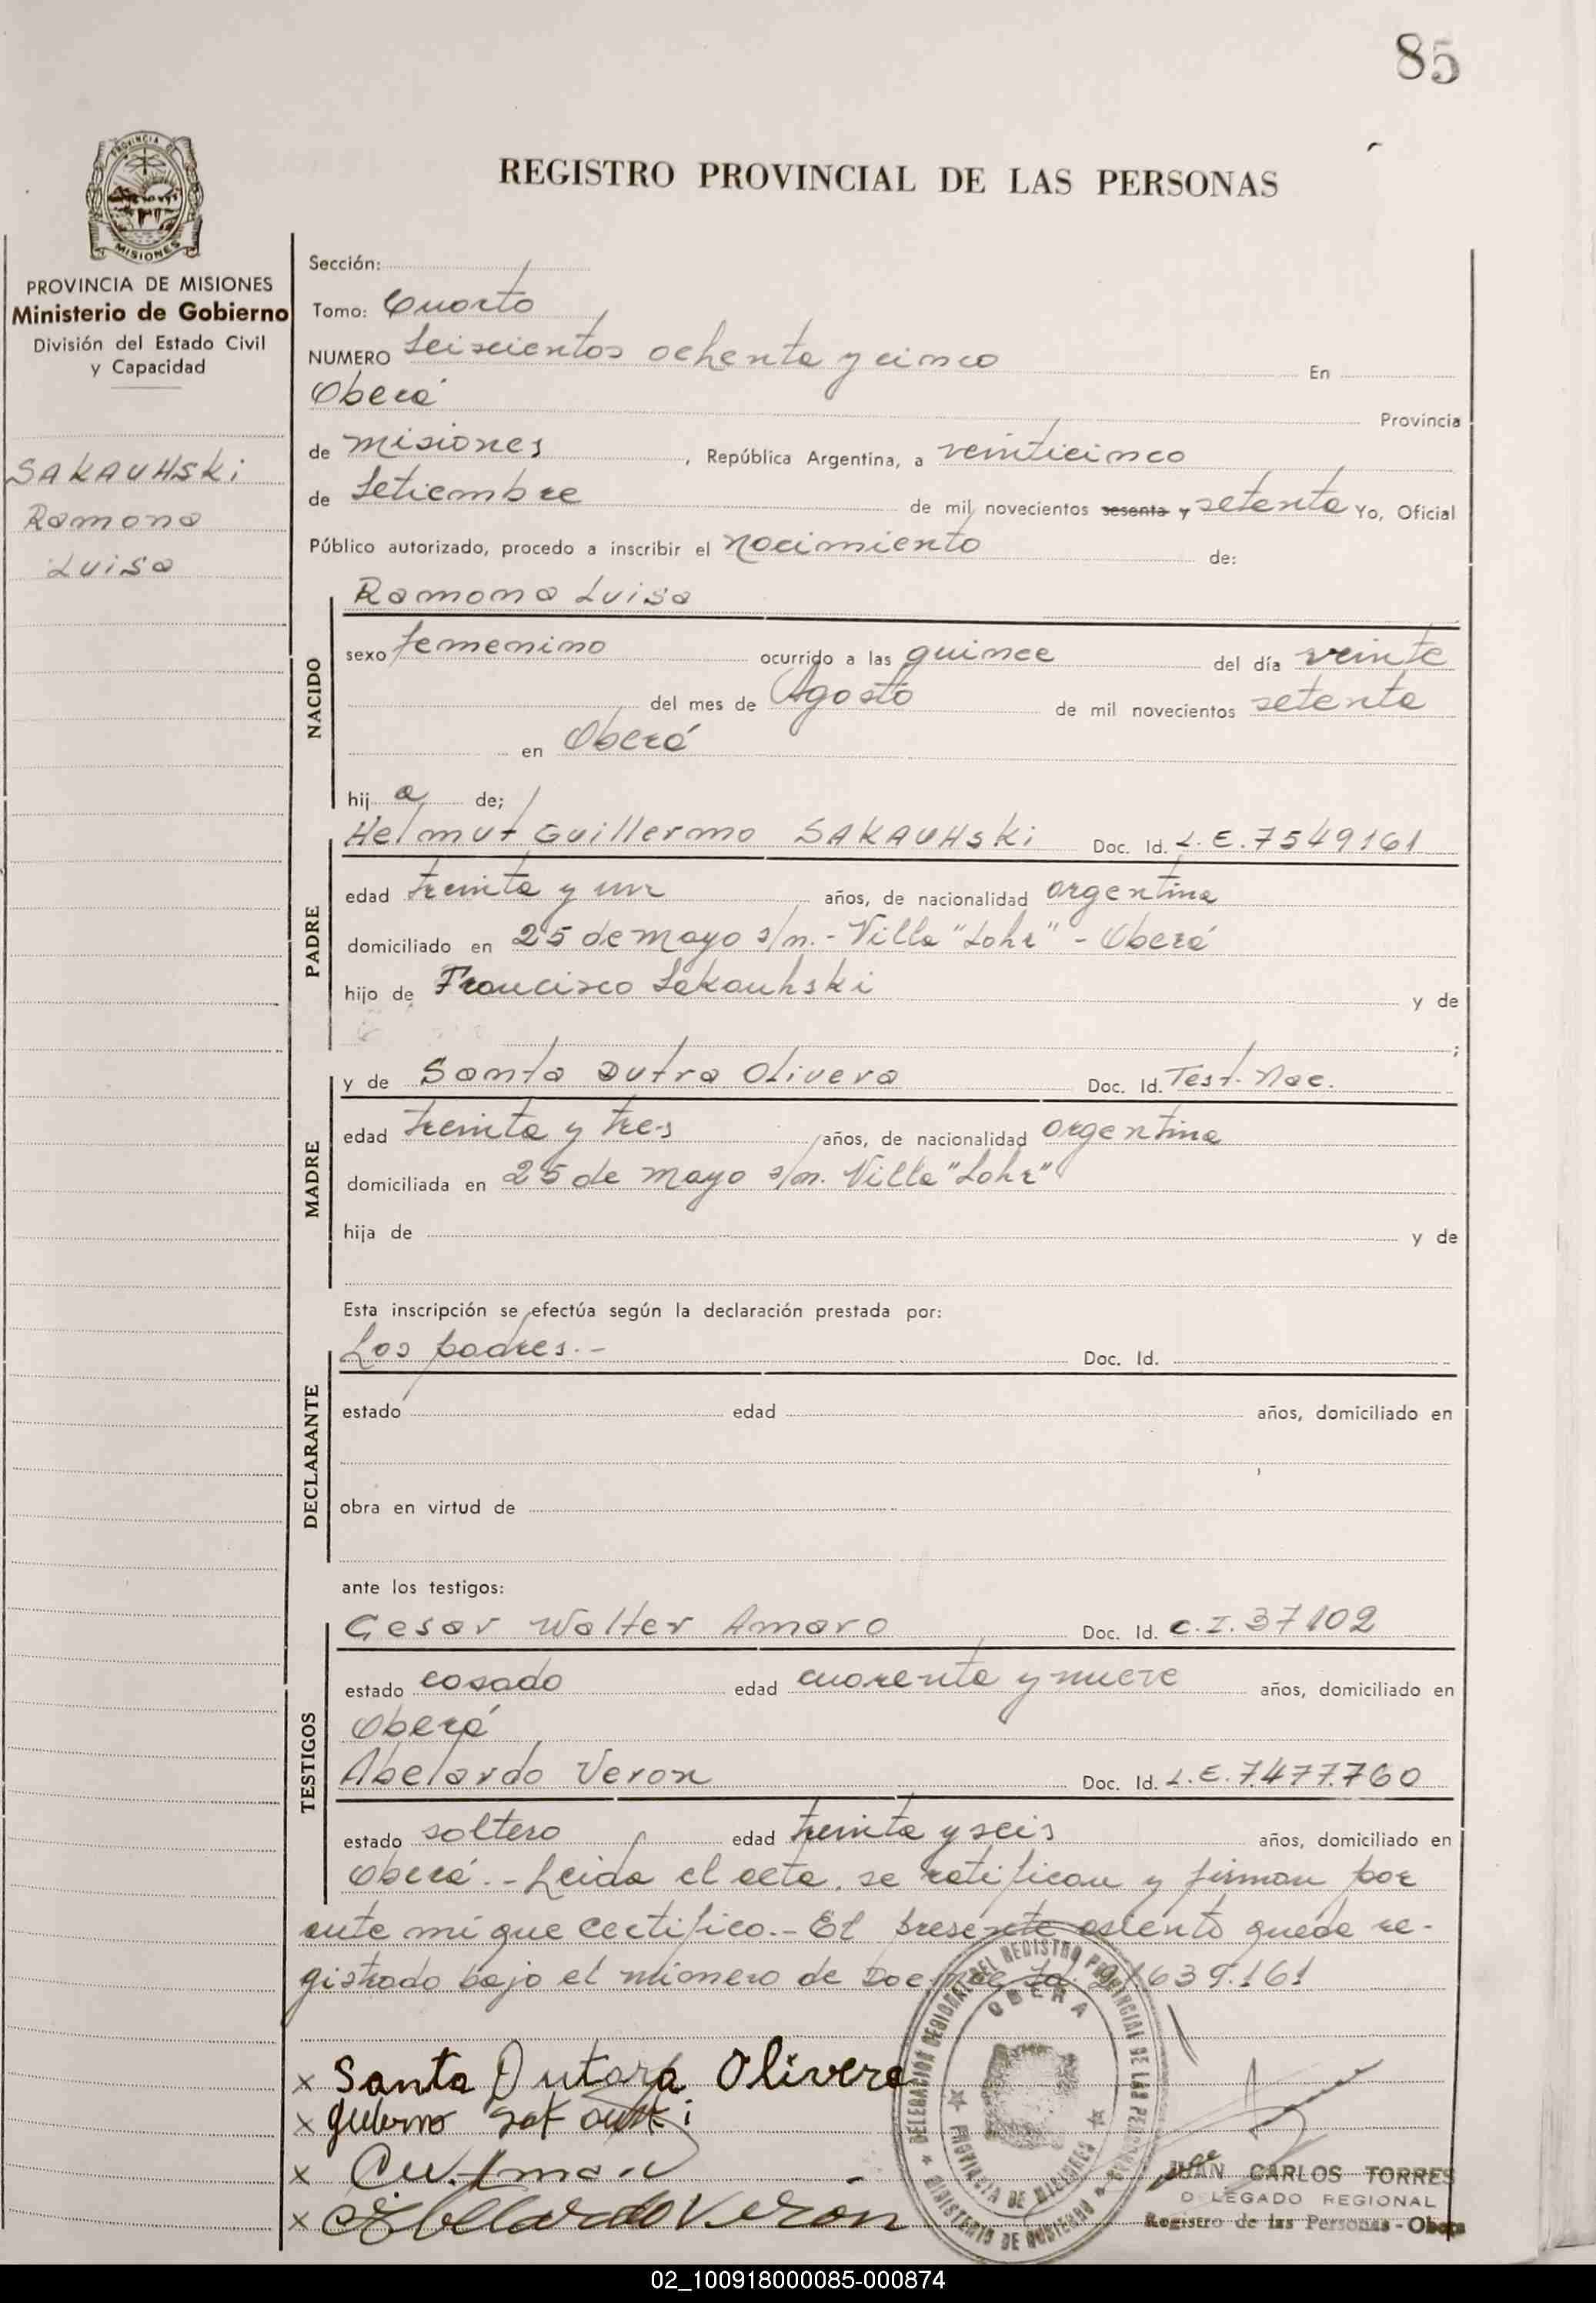 85
REGISTRO PROVINCIAL DE LAS PERSONAS
PROVINCIA DE MISIONES
PROVINCIA DE MISIONES
Ministerio de Gobierno
División del Estado Civil
y Capacidad
SAKAUHSKi
Ramona
Luisa
Sección:
Tomo: Cuarto
NUMERO Seiscientos ochenta y cinco En
Oberá Provincia
de misiones , República Argentina, a veinticinco
de Setiembre de mil novecientos sesenta y setenta Yo, Oficial
Público autorizado, procedo a inscribir el nacimiento de:
NACIDO
Ramona Luisa
sexo femenino ocurrido a las quince del día veinte
del mes de Agosto de mil novecientos setenta
en Oberá
hij a de;
PADRE
Helmut Guillermo SAKAUHSki Doc. Id. L.E. 7549161
edad treinta y un años, de nacionalidad argentina
domiciliado en 25 de mayo s/n.- Villa "Lohr" - Oberá
hijo de Francisco Sakauhski y de
;
MADRE
y de Santa Dutra Olivera Doc. Id. Test. Nac.
edad treinta y tres años, de nacionalidad argentina
domiciliada en 25 de mayo s/n. Villa "Lohr"
hija de y de
Esta inscripción se efectúa según la declaración prestada por:
DECLARANTE
Los padres.- Doc. Id.
estado edad años, domiciliado en
obra en virtud de
ante los testigos:
TESTIGOS
Cesar Walter Amaro Doc. Id. C.I. 37102
estado casado edad cuarenta y nueve años, domiciliado en
Oberá
Abelardo Veron Doc. Id. L.E. 7.477.760
estado soltero edad treinta y seis años, domiciliado en
Oberá.- Leida el acta, se ratifican y firman por
ante mí que certifico.- El presente asiento queda re-
gistrado bajo el número de Doc. Nac. Id. 21.639.161
x Santa Dutara Olivera
x
x
x Abelardo Verón
DELEGACION REGIONAL DEL REGISTRO PROVINCIAL DE LAS PERSONAS
OBERA
PROVINCIA DE MISIONES
MINISTERIO DE GOBIERNO
JUAN CARLOS TORRES
DELEGADO REGIONAL
Registro de las Personas - Obera
02_100918000085-000874